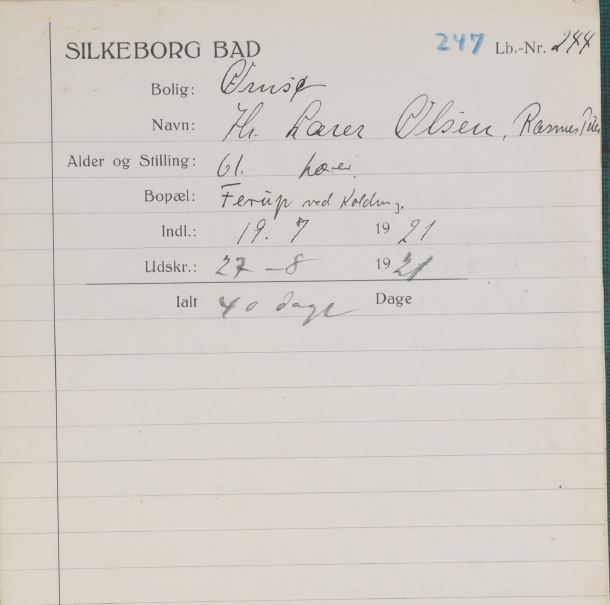 SILKEBORG BAD 247 Lb.-Nr. 244
Bolig: Ørnsø
Navn: Hr. Lærer Olsen, Rasmus Peter
Alder og Stilling: 61. Lærer.
Bopæl: Ferup ved Kolding.
Indl.: 19. 7 1921
Udskr.: 27-8 1921
Ialt 40 dage Dage